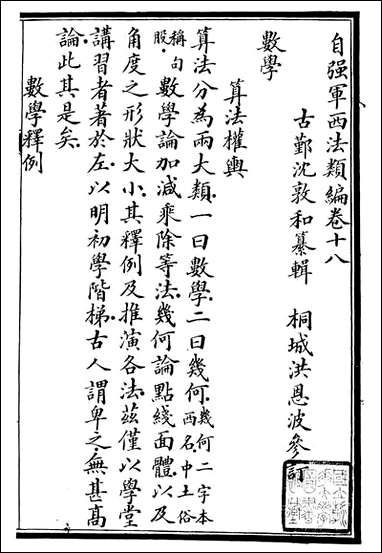 自强軍西法類編卷十八
古鄞沈敦和纂輯 桐城洪恩波參訂
數學
算法權輿
算法分為兩大類.一曰數學.二曰幾何.幾何二字本西名.中土俗
稱句股.數學論加減乘除等法.幾何論點綫面體.以及
角度之形狀大小.其釋例及推演各法.茲僅以學堂
講習者著於左.以明初學階梯.古人謂卑之無甚高
論.此其是矣.
數學釋例